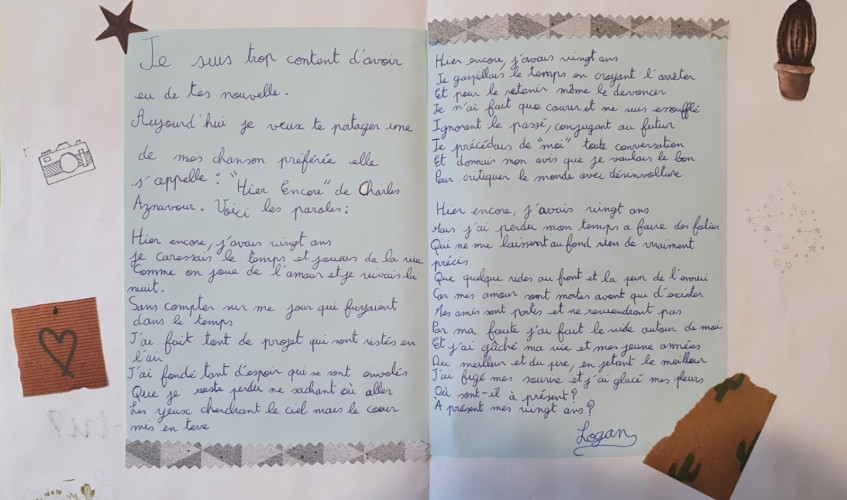 Je suis trop content d'avoir
eu de tes nouvelle.
Aujourd'hui je veux te patager une
de mes chanson préférée elle
s'appelle : "Hier Encore" de Charles
Aznavour. Voici les paroles :
Hier encore, j'avais vingt ans
je caressais le temps et joueus de la vie
Comme on joue de l'amour et je vivais la
nuit.
Sans compter sur me jour qui fuyaient
dans le temps
J'ai fait tent de projet qui sont restés en
l'air
J'ai fondé tant d'espoir qui se sont envolés
Que je reste perdu ne sachant où aller
Les yeux cherchant le ciel mais le cœur
mis en terre
Hier encore, j'avais vingt ans
Je gaspillais le temps en croyant l'arrêter
Et pour le retenir même le devancer
Je n'ai fait que courir et me suis essoufflé
Ignorant le passé, conjugant au futur
Je précédais de "moi" toute conversation
Et donnais mon avis que je voulais le bon
Pour critiquer le monde avec désinvolture
Hier encore, j'avais vingt ans
Mais j'ai perdu mon temps a faire des folies
Qui ne me laissent au fond rien de vraiment
précis
Que quelque rides au front et la peur de l'ennui
Car mes amour sont mortes avant que d'exister
Mes amis sont partes et ne reviendront pas
Par ma faute j'ai fait le vide autour de moi
Et j'ai gâché ma vie et mes jeune années
Du meilleur et du pire, en jetant le meilleur
J'ai figé mes sourire et j'ai glacé mes pleurs
Où sont-il à présent ?
A présent mes vingt ans ?
Logan